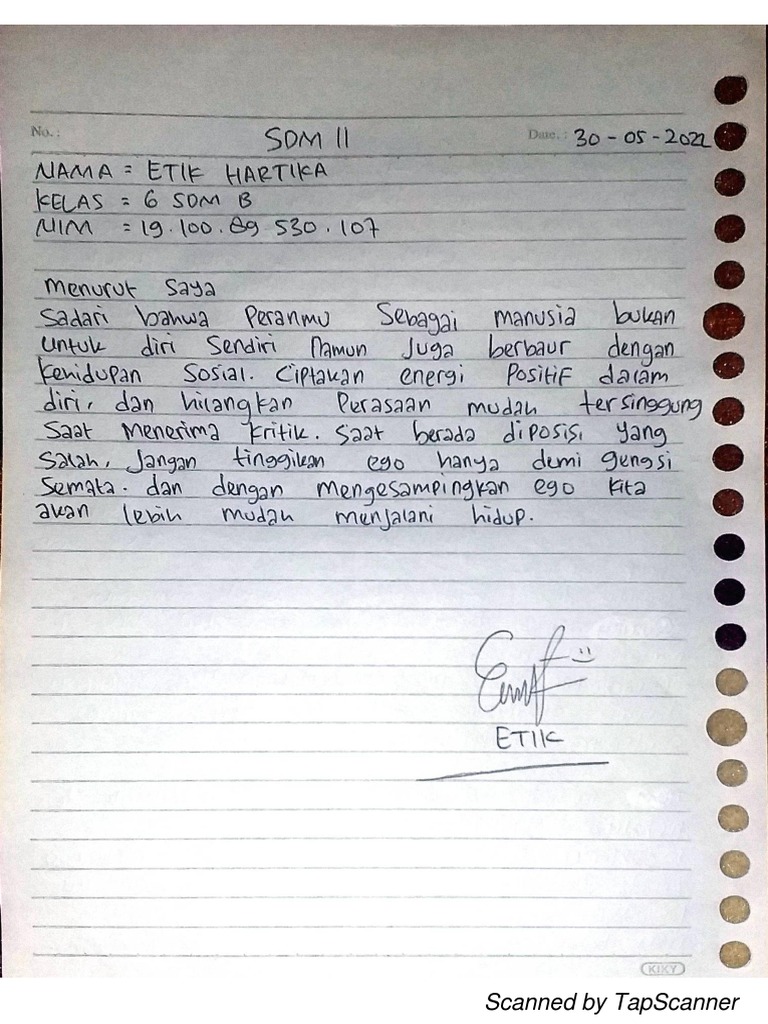 No.: SDM II Date.: 30 - 05 - 2022
NAMA = ETIK HARTIKA
KELAS = 6 SDM B
NIM = 19.100.89 530.107
Menurut saya
Sadari bahwa Peranmu Sebagai manusia bukan
untuk diri Sendiri Namun Juga berbaur dengan
kehidupan Sosial. Ciptakan energi Positif dalam
diri, dan hilangkan Perasaan mudah tersinggung
Saat Menerima kritik. Saat berada diposisi yang
Salah, Jangan tinggikan ego hanya demi gengsi
Semata. dan dengan mengesampingkan ego kita
akan lebih mudah menjalani hidup.
ETIK
KIKY
Scanned by TapScanner